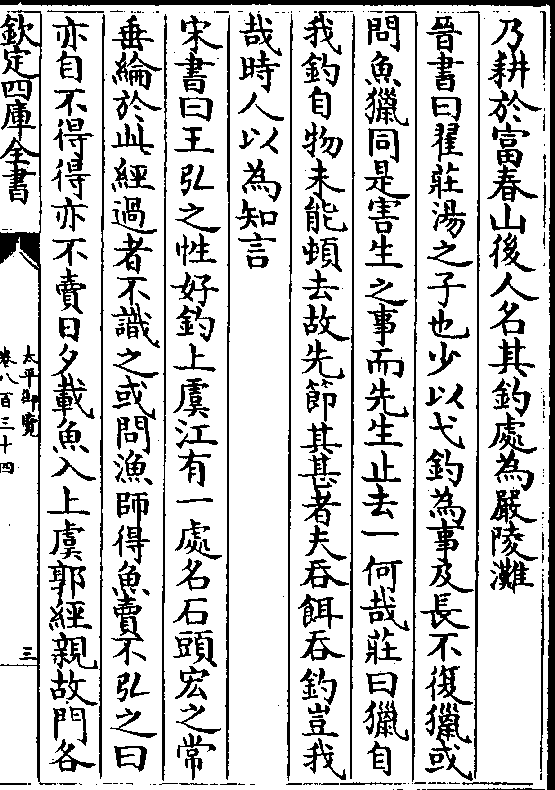 乃耕於富春山後人名其釣處為嚴陵灘
晉書曰翟莊湯之子也少以弋釣為事及長不復獵或
問魚獵同是害生之事而先生止去一何哉莊曰獵自
我釣自物未能頓去故先節其甚者夫吞餌吞釣豈我
哉時人以為知言
宋書曰王弘之性好釣上虞江有一處名石頭宏之常
垂綸於此經過者不識之或問漁師得魚賣不弘之曰
亦自不得得亦不賣日夕載魚入上虞郭經親故門各
欽定四庫全書
太平御覽
卷八百三十四
三